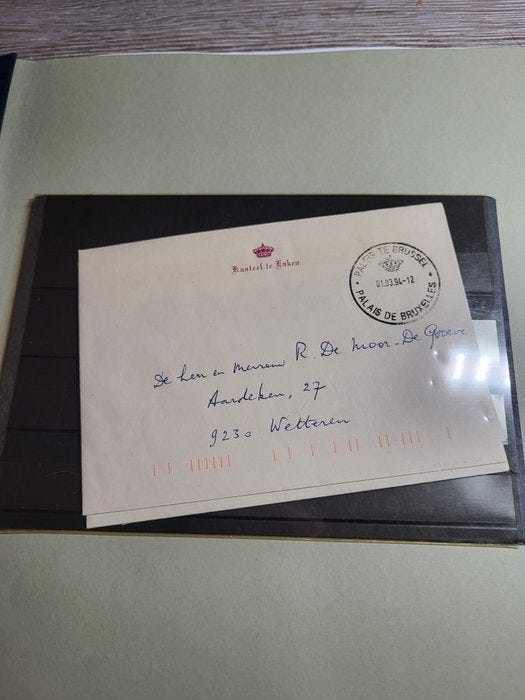 Kasteel te Laken
PALEIS TE BRUSSEL
01.03.94-12
PALAIS DE BRUXELLES
De Heer en Mevrouw R. De Moor - De Groeve
Aardeken, 27
9230 Wetteren